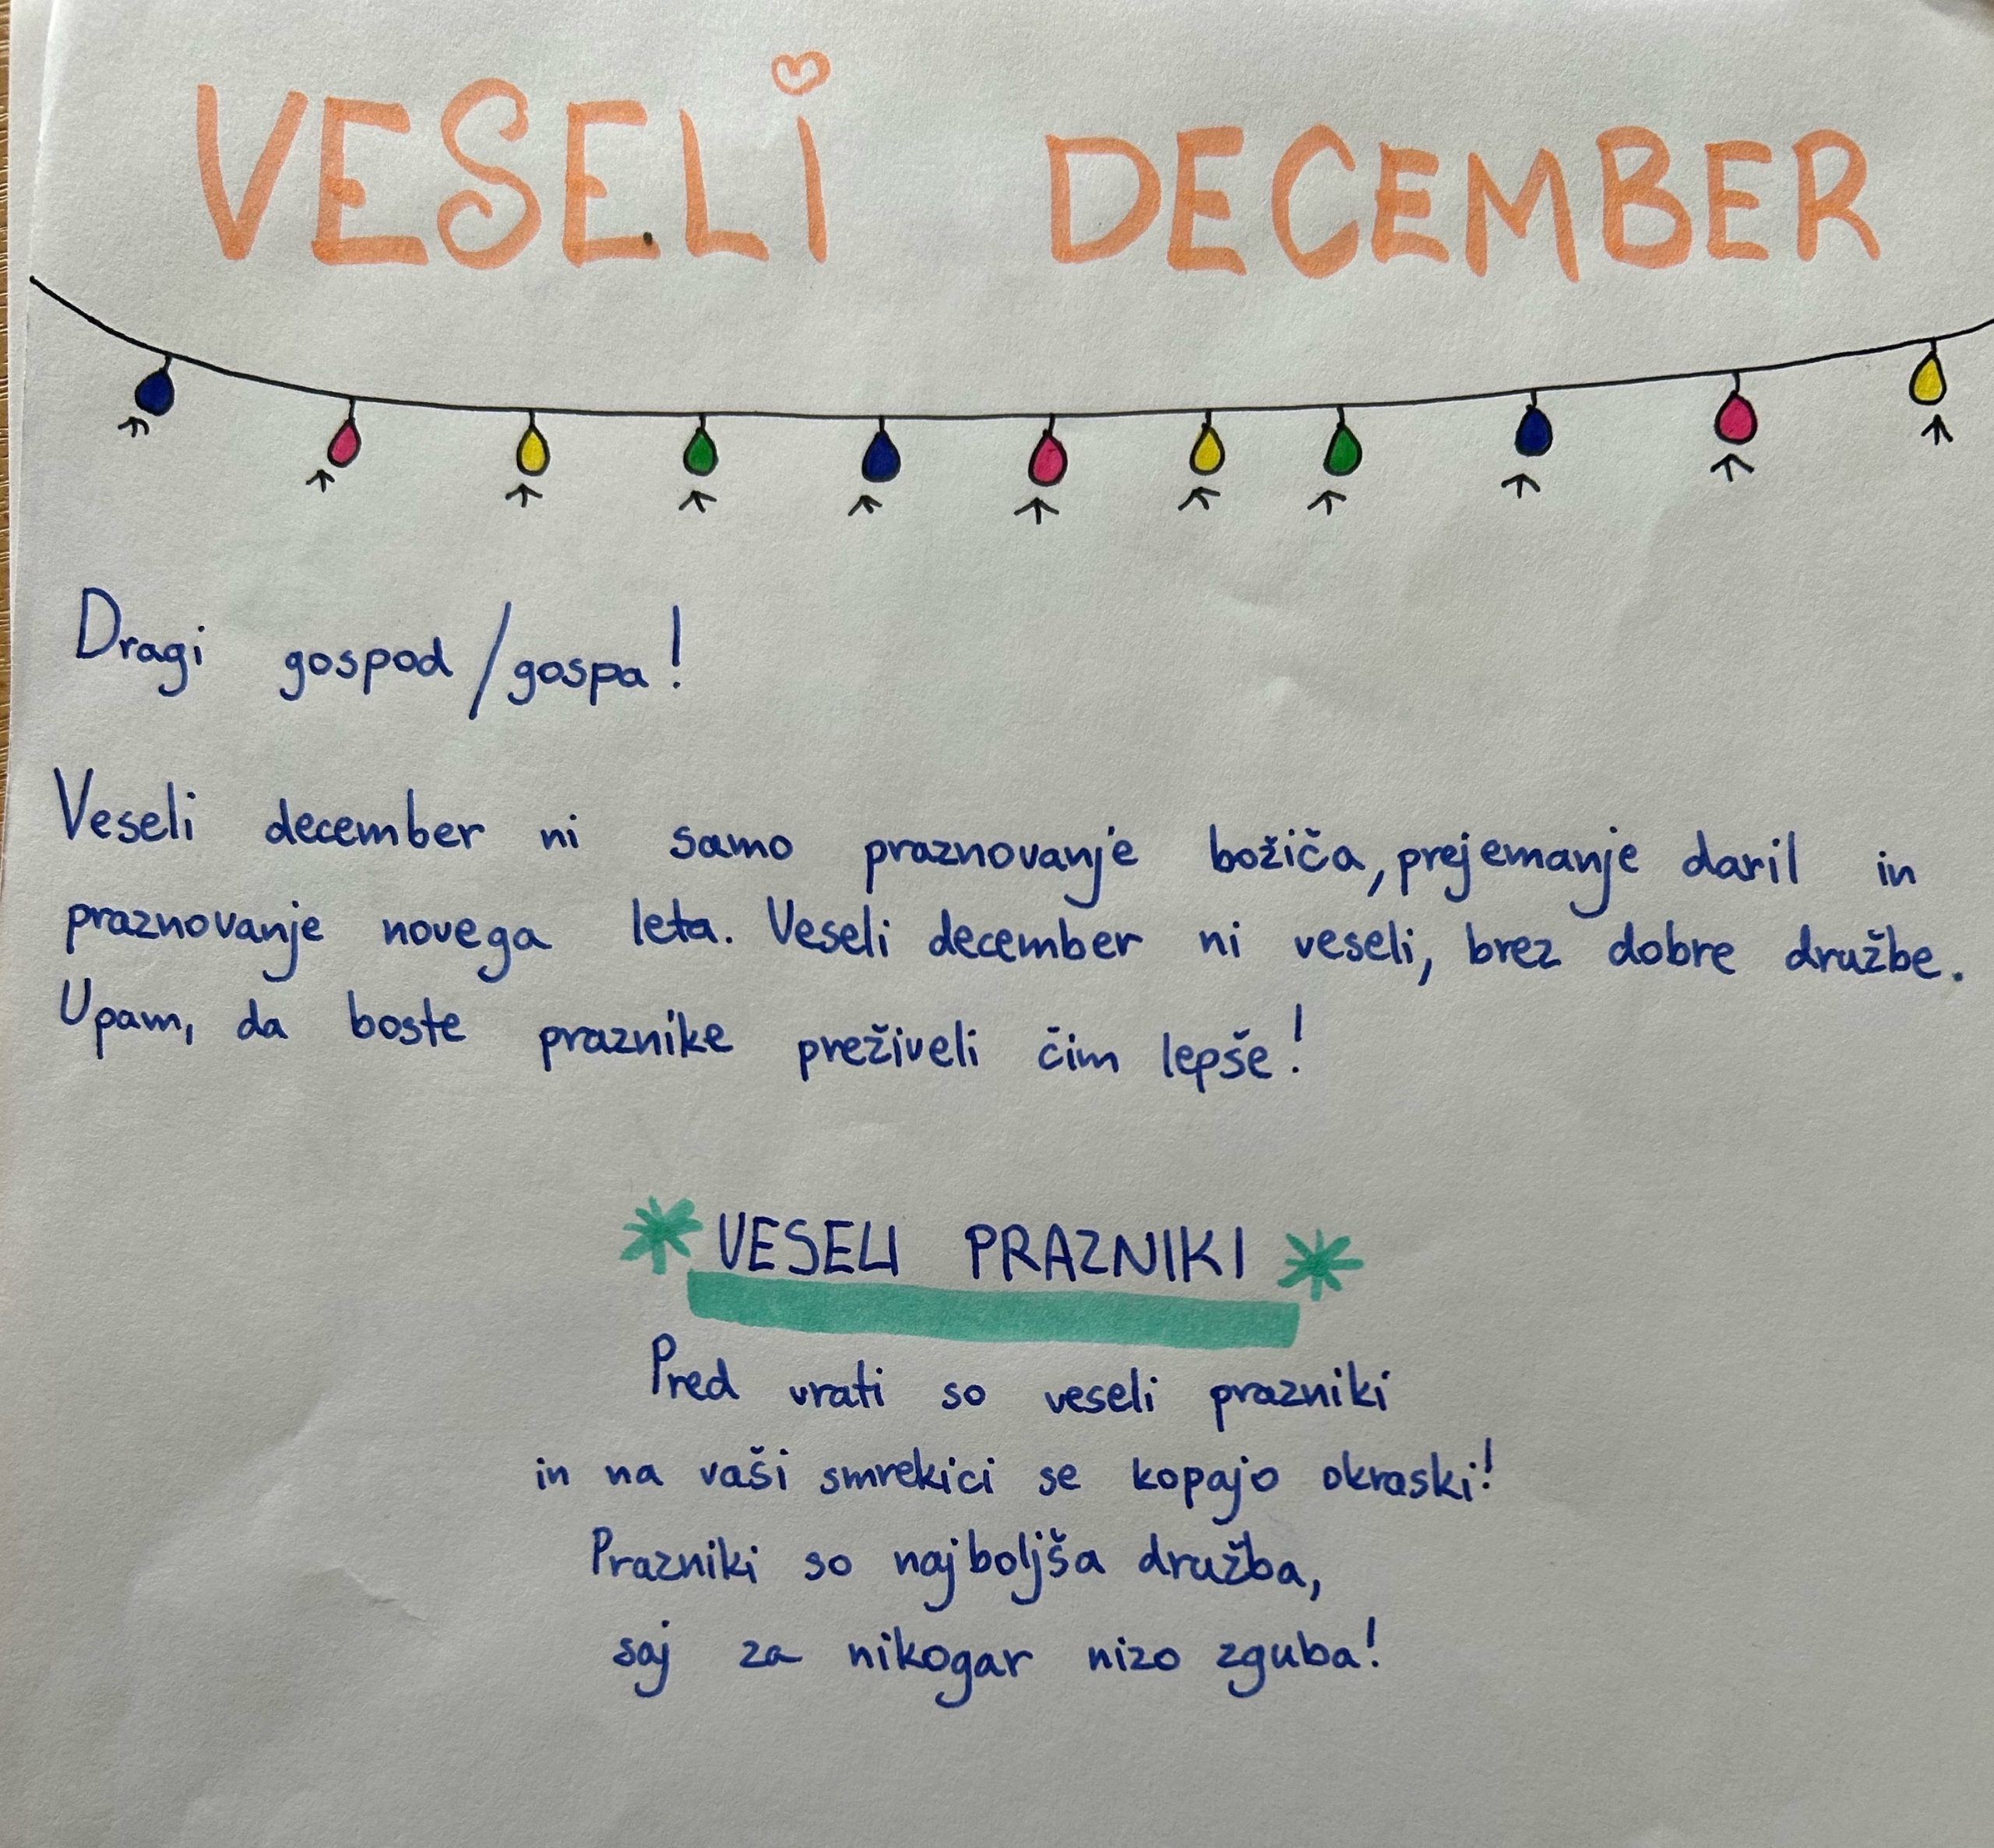 VESELi DECEMBER
Dragi gospod/gospa!
Veseli december ni samo praznovanje božiča, prejemanje daril in
praznovanje novega leta. Veseli december ni veseli, brez dobre družbe.
Upam, da boste praznike preživeli čim lepše!
VESELI PRAZNIKI
Pred vrati so veseli prazniki
in na vaši smrekici se kopajo okraski!
Prazniki so najboljša družba,
saj za nikogar nizo zguba!